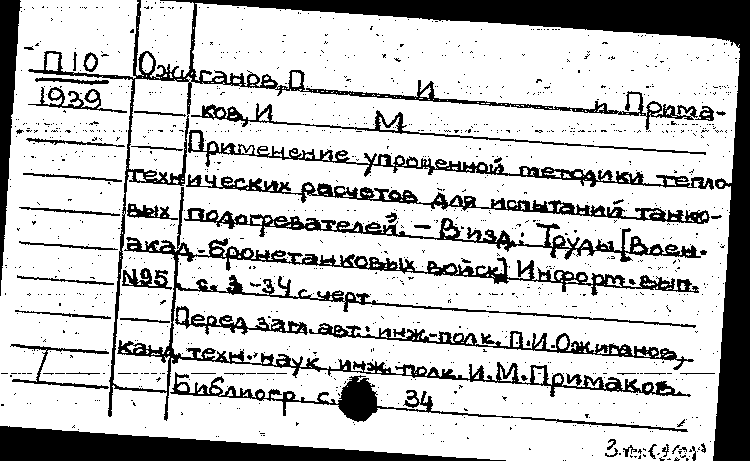 П10
1939
Ожиганов, П И и Прима-
ков, И М
Применение упрощенной методики тепло-
технических расчетов для испытаний танко-
вых подогревателей. – В изд.: Труды [Воен.
акад. бронетанковых войск] Информ. вып.
N95, с. 3-34 с черт.
Перед загл. авт.: инж.-полк. П.И.Ожиганов,
канд. техн. наук, инж.-полк. И.М.Примаков.
Библиогр. с. 34